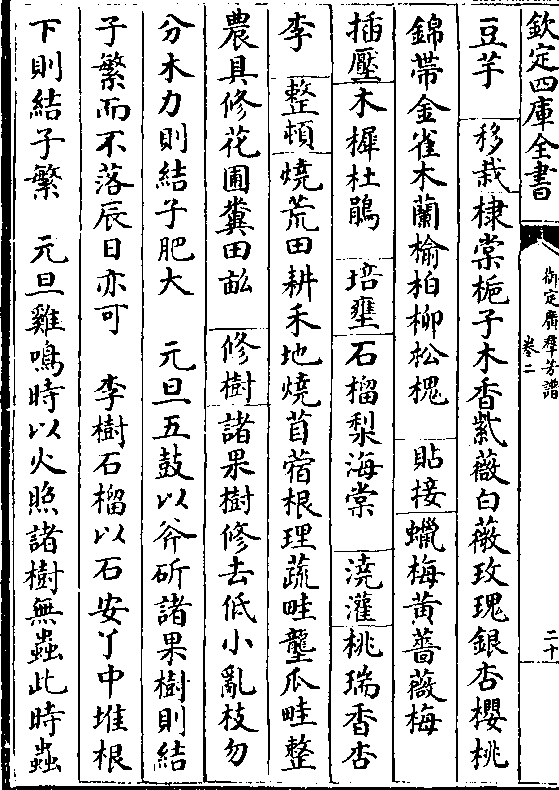 欽定四庫全書
御定廣羣芳譜
卷二
二十
豆芋 移栽棣棠梔子木香紫薇白薇玫瑰銀杏櫻桃
錦帶金雀木蘭榆柏柳松槐 貼接蠟梅黃薔薇梅
插壓木樨杜鵑 培壅石榴梨海棠 澆灌桃瑞香杏
李 整頓燒荒田耕禾地燒苜蓿根理蔬畦壟瓜畦整
農具修花圃糞田畝 修樹諸果樹修去低小亂枝勿
分木力則結子肥大 元旦五鼓以斧斫諸果樹則結
子繁而不落辰日亦可 李樹石榴以石安丫中堆根
下則結子繁 元旦雞鳴時以火照諸樹無蟲此時蟲